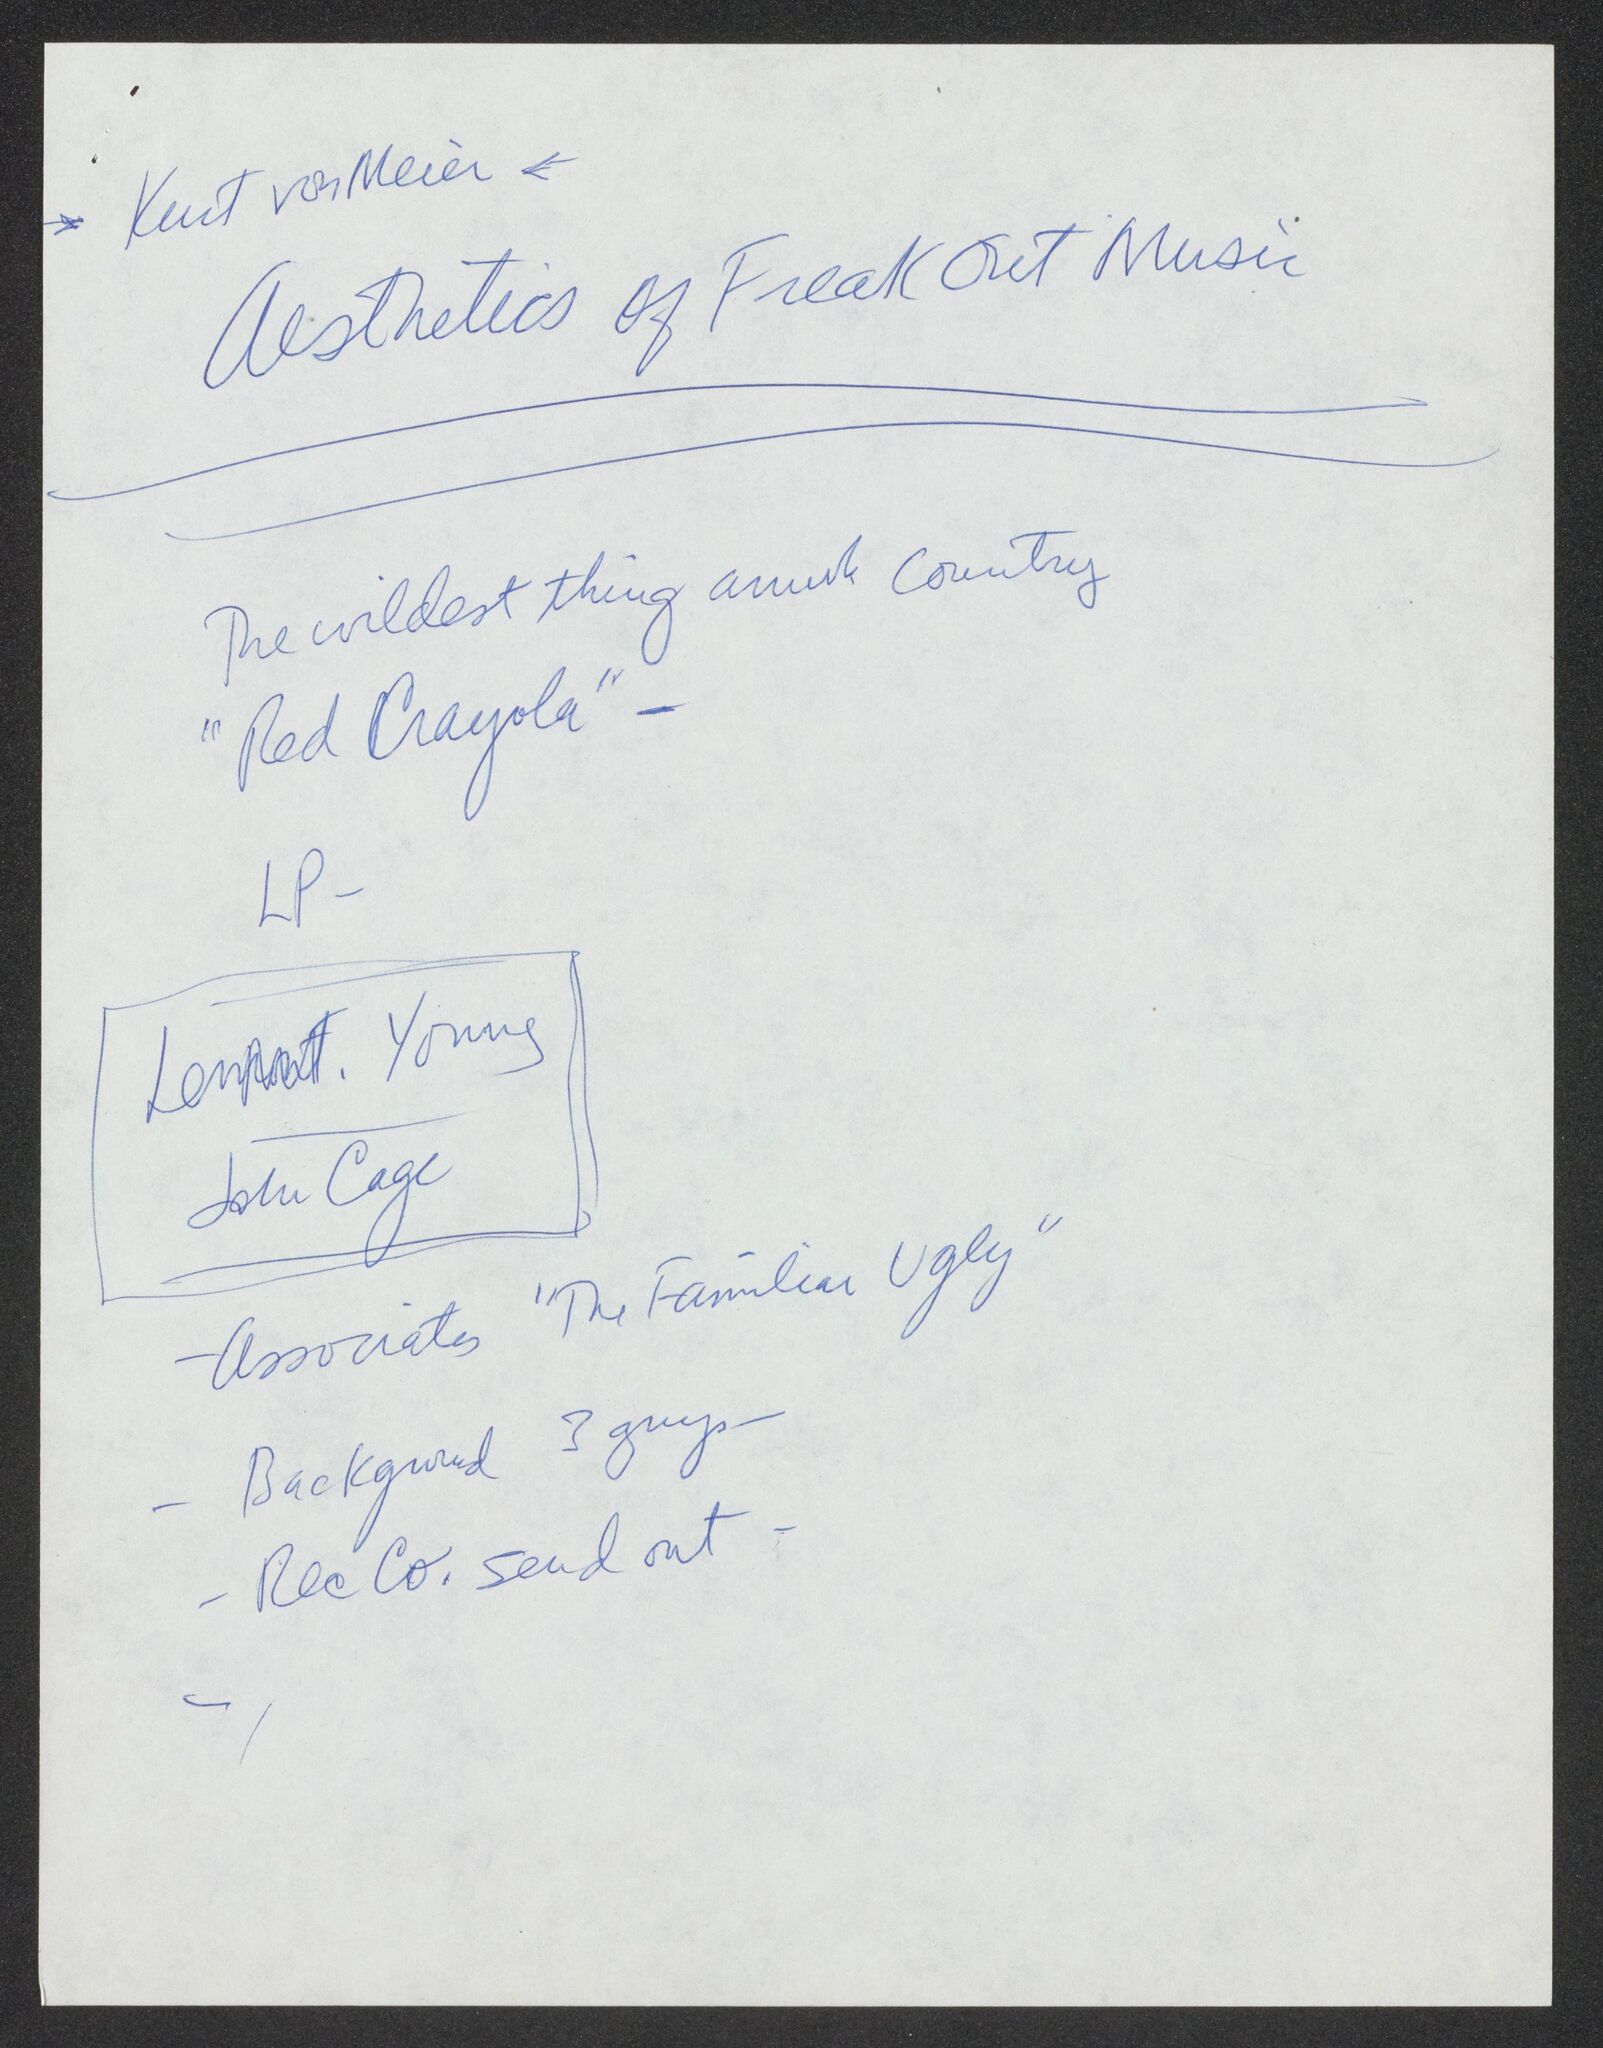 → Kurt von Meier ←
Aesthetics of Freak Out Music
The wildest thing country
"Red Crayola" -
LP -
Young
John Cage
- Associates "The Familiar Ugly"
- Background 3 guys -
- Rec Co. send out -
-